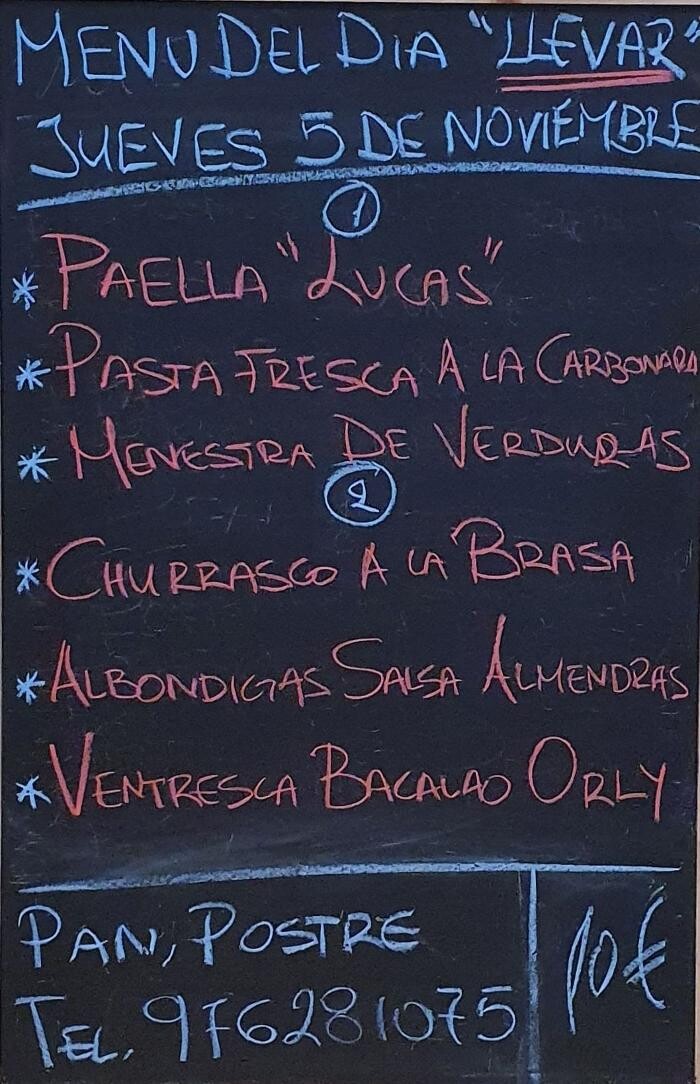 MENU DEL DIA "LLEVAR"
JUEVES 5 DE NOVIEMBRE
1
* PAELLA "LUCAS"
* PASTA FRESCA A LA CARBONARA
* MENESTRA DE VERDURAS
2
* CHURRASCO A LA BRASA
* ALBONDIGAS SALSA ALMENDRAS
* VENTRESCA BACALAO ORLY
PAN, POSTRE
10€
TEL. 976281075